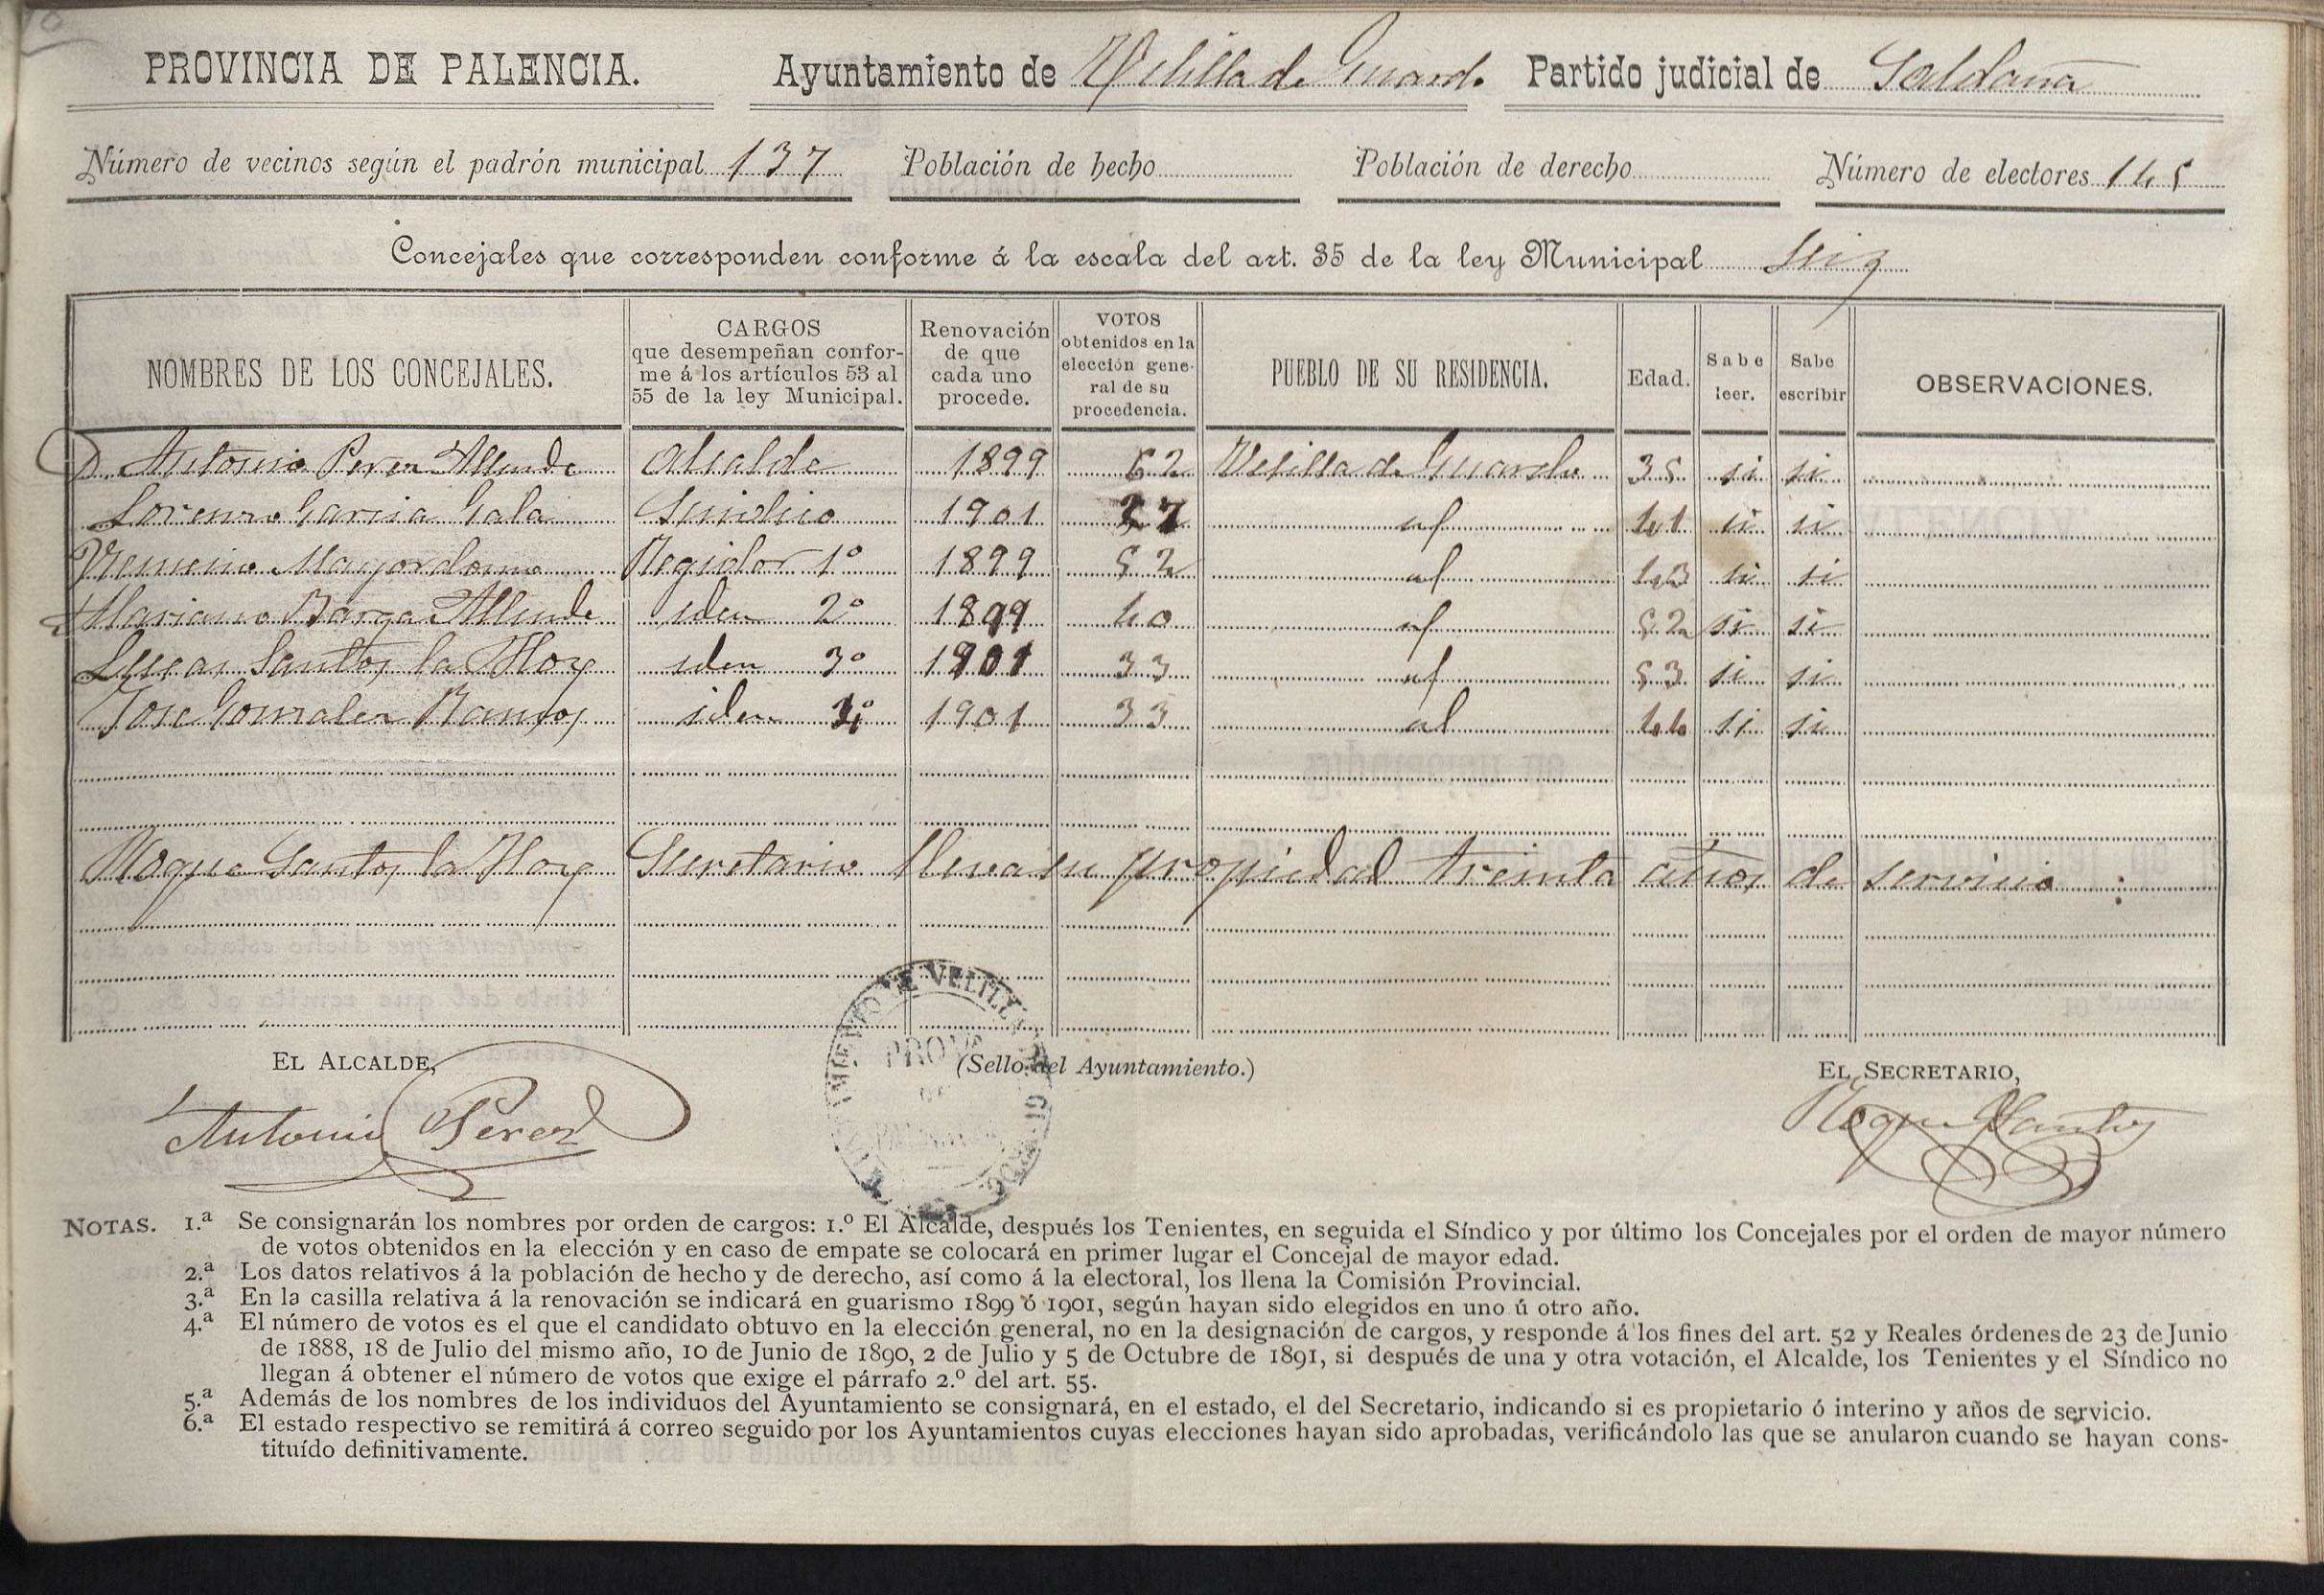 PROVINCIA DE PALENCIA. Ayuntamiento de Velilla de Guard. Partido judicial de Saldaña
Número de vecinos según el padrón municipal 137 Población de hecho Población de derecho Número de electores 145
Concejales que corresponden conforme á la escala del art. 35 de la ley Municipal Seis
NOMBRES DE LOS CONCEJALES. CARGOS que desempeñan conforme á los artículos 53 al 55 de la ley Municipal. Renovación de que cada uno procede. VOTOS obtenidos en la elección general de su procedencia. PUEBLO DE SU RESIDENCIA. Edad. Sabe leer. Sabe escribir OBSERVACIONES.
D. Antonio Perez Allende Alcalde 1899 62 Velilla de Guardo 35 si si
Lorenzo Garcia Gala Sindico 1901 37 id 41 si si
Mayordomo Regidor 1º 1899 52 id 43 si si
Mariano Barga Allende iden 2º 1899 40 id 52 si si
Lucas Santos la Hoz iden 3º 1901 33 id 53 si si
Jose Gonzalez Ramos iden 4º 1901 33 id 44 si si
Roque Santos la Hoz Secretario lleva en propiedad treinta años de servicio
EL ALCALDE, (Sello del Ayuntamiento.) EL SECRETARIO,
Antonio Perez Roque Santos
NOTAS. 1.ª Se consignarán los nombres por orden de cargos: 1.º El Alcalde, después los Tenientes, en seguida el Síndico y por último los Concejales por el orden de mayor número
de votos obtenidos en la elección y en caso de empate se colocará en primer lugar el Concejal de mayor edad.
2.ª Los datos relativos á la población de hecho y de derecho, así como á la electoral, los llena la Comisión Provincial.
3.ª En la casilla relativa á la renovación se indicará en guarismo 1899 ó 1901, según hayan sido elegidos en uno ú otro año.
4.ª El número de votos es el que el candidato obtuvo en la elección general, no en la designación de cargos, y responde á los fines del art. 52 y Reales órdenes de 23 de Junio
de 1888, 18 de Julio del mismo año, 10 de Junio de 1890, 2 de Julio y 5 de Octubre de 1891, si después de una y otra votación, el Alcalde, los Tenientes y el Síndico no
llegan á obtener el número de votos que exige el párrafo 2.º del art. 55.
5.ª Además de los nombres de los individuos del Ayuntamiento se consignará, en el estado, el del Secretario, indicando si es propietario ó interino y años de servicio.
6.ª El estado respectivo se remitirá á correo seguido por los Ayuntamientos cuyas elecciones hayan sido aprobadas, verificándolo las que se anularon cuando se hayan cons-
tituído definitivamente.